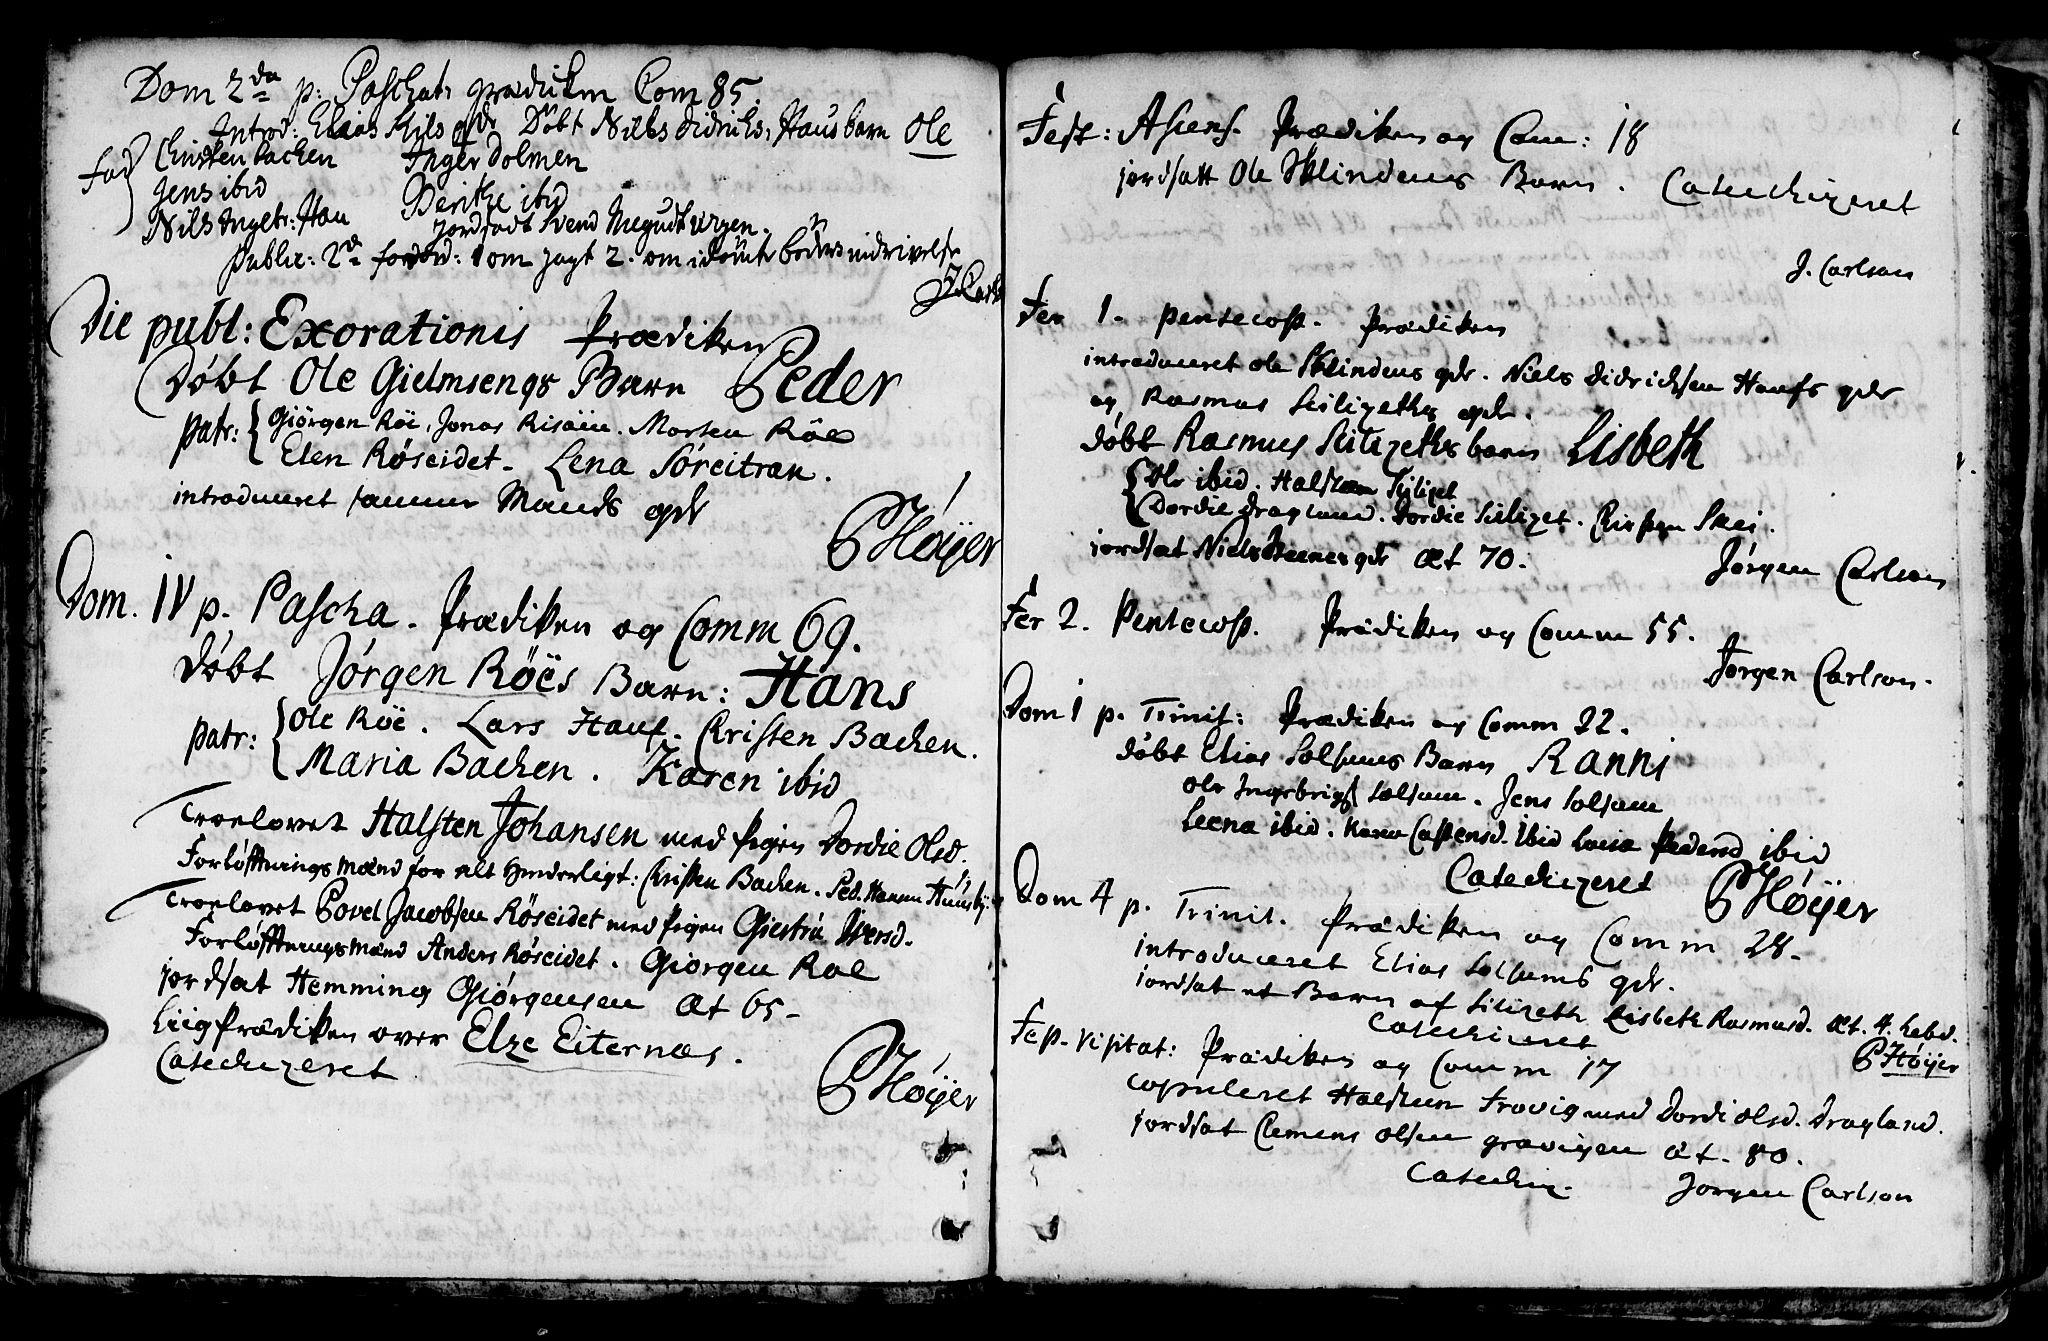 Dom 2da p: Paschat: prædiken Com 85.
Introd: Elias Kils qdr Døbt Nills Didriks: Haus barn Ole
Fad Christen bachen Inger Dolmen
Jens ibid Berithe ibid
Nils Ingbr: Hau Jordsadt Svend
Public: 2de forord: 1 om jagt 2. om idømte bøders inddrivelse
Die publ: Exorationis Prædiken
Døbt Ole Gielmsengs Barn Peder
patr: Giörgen Röe, Jonas Risöin. Morten Röe
Elen Røseidet. Lena Söreitran.
introduceret samme Mands qdr
PHøÿer
Dom. IV p. Pascha. Prædiken og Comm 69.
Døbt Jórgen Röes Barn: Hans
patr: Ole Röe. Lars Hauf. Christen Bachen.
Maria Bachen. Karen ibid
Troelovet Halsten Johansen med Pigen Dordie Olsd.
Forløfftnings mænd for alt Hinderligt: Christen Bachen. Ped.
Troelovet Povel Jacobsen Røseidet med Pigen Giertru Iversd.
Forløfftningsmænd Anders Røseidet. Giörgen Röe
jordsat Hemming Giörgensen Æt 65-
Liigprædiken over Elze Eiternæs.
Catechizeret
PHøÿer
Fest: Ascens. Prædiken og Com: 18
jordsatt Ole Sklindens Barn. Catechizeret
J. Carlson
Fer 1. pentecost. Prædiken
introduceret ole Sklindens qdr. Niels Didrichsen Haufs qdr
og Rasmus Silizeths qdr.
døbt Rasmus Silizeths barn Lisbeth
Ole ibid. Halsten Silizet
Dordie Dragland. Dordie Silizet. Kirsten Skei.
jordsat Niels qdr Æt 70.
Jørgen Carlson
Fer 2. Pentecost. Prædiken og Comm 55.
Jørgen Carlson.
Dom 1 p. Trinit: Prædiken og Comm 22.
døbt Elias Solsems Barn Ranni
ole Ingebrigt Solsem. Jens Solsem
Leena ibid. Karen Castensd. ibid Pedersd ibid
Catechizeret PHøÿer
Dom 4 p. Trinit. Prædiken og Comm 28.
introduceret Elias Solsems qdr.
jordsat et Barn af Silizeth Lisbeth Rasmusd. Æt. 4. hebd.
Catechizeret
PHøÿer
Fest. Visitat: Prædiken og Comm 17
copuleret Halsten Frovig med Dordi olsd. Dragland.
jordsat Clemens olsen æt. 80.
Catechiz. Jorgen Carlson